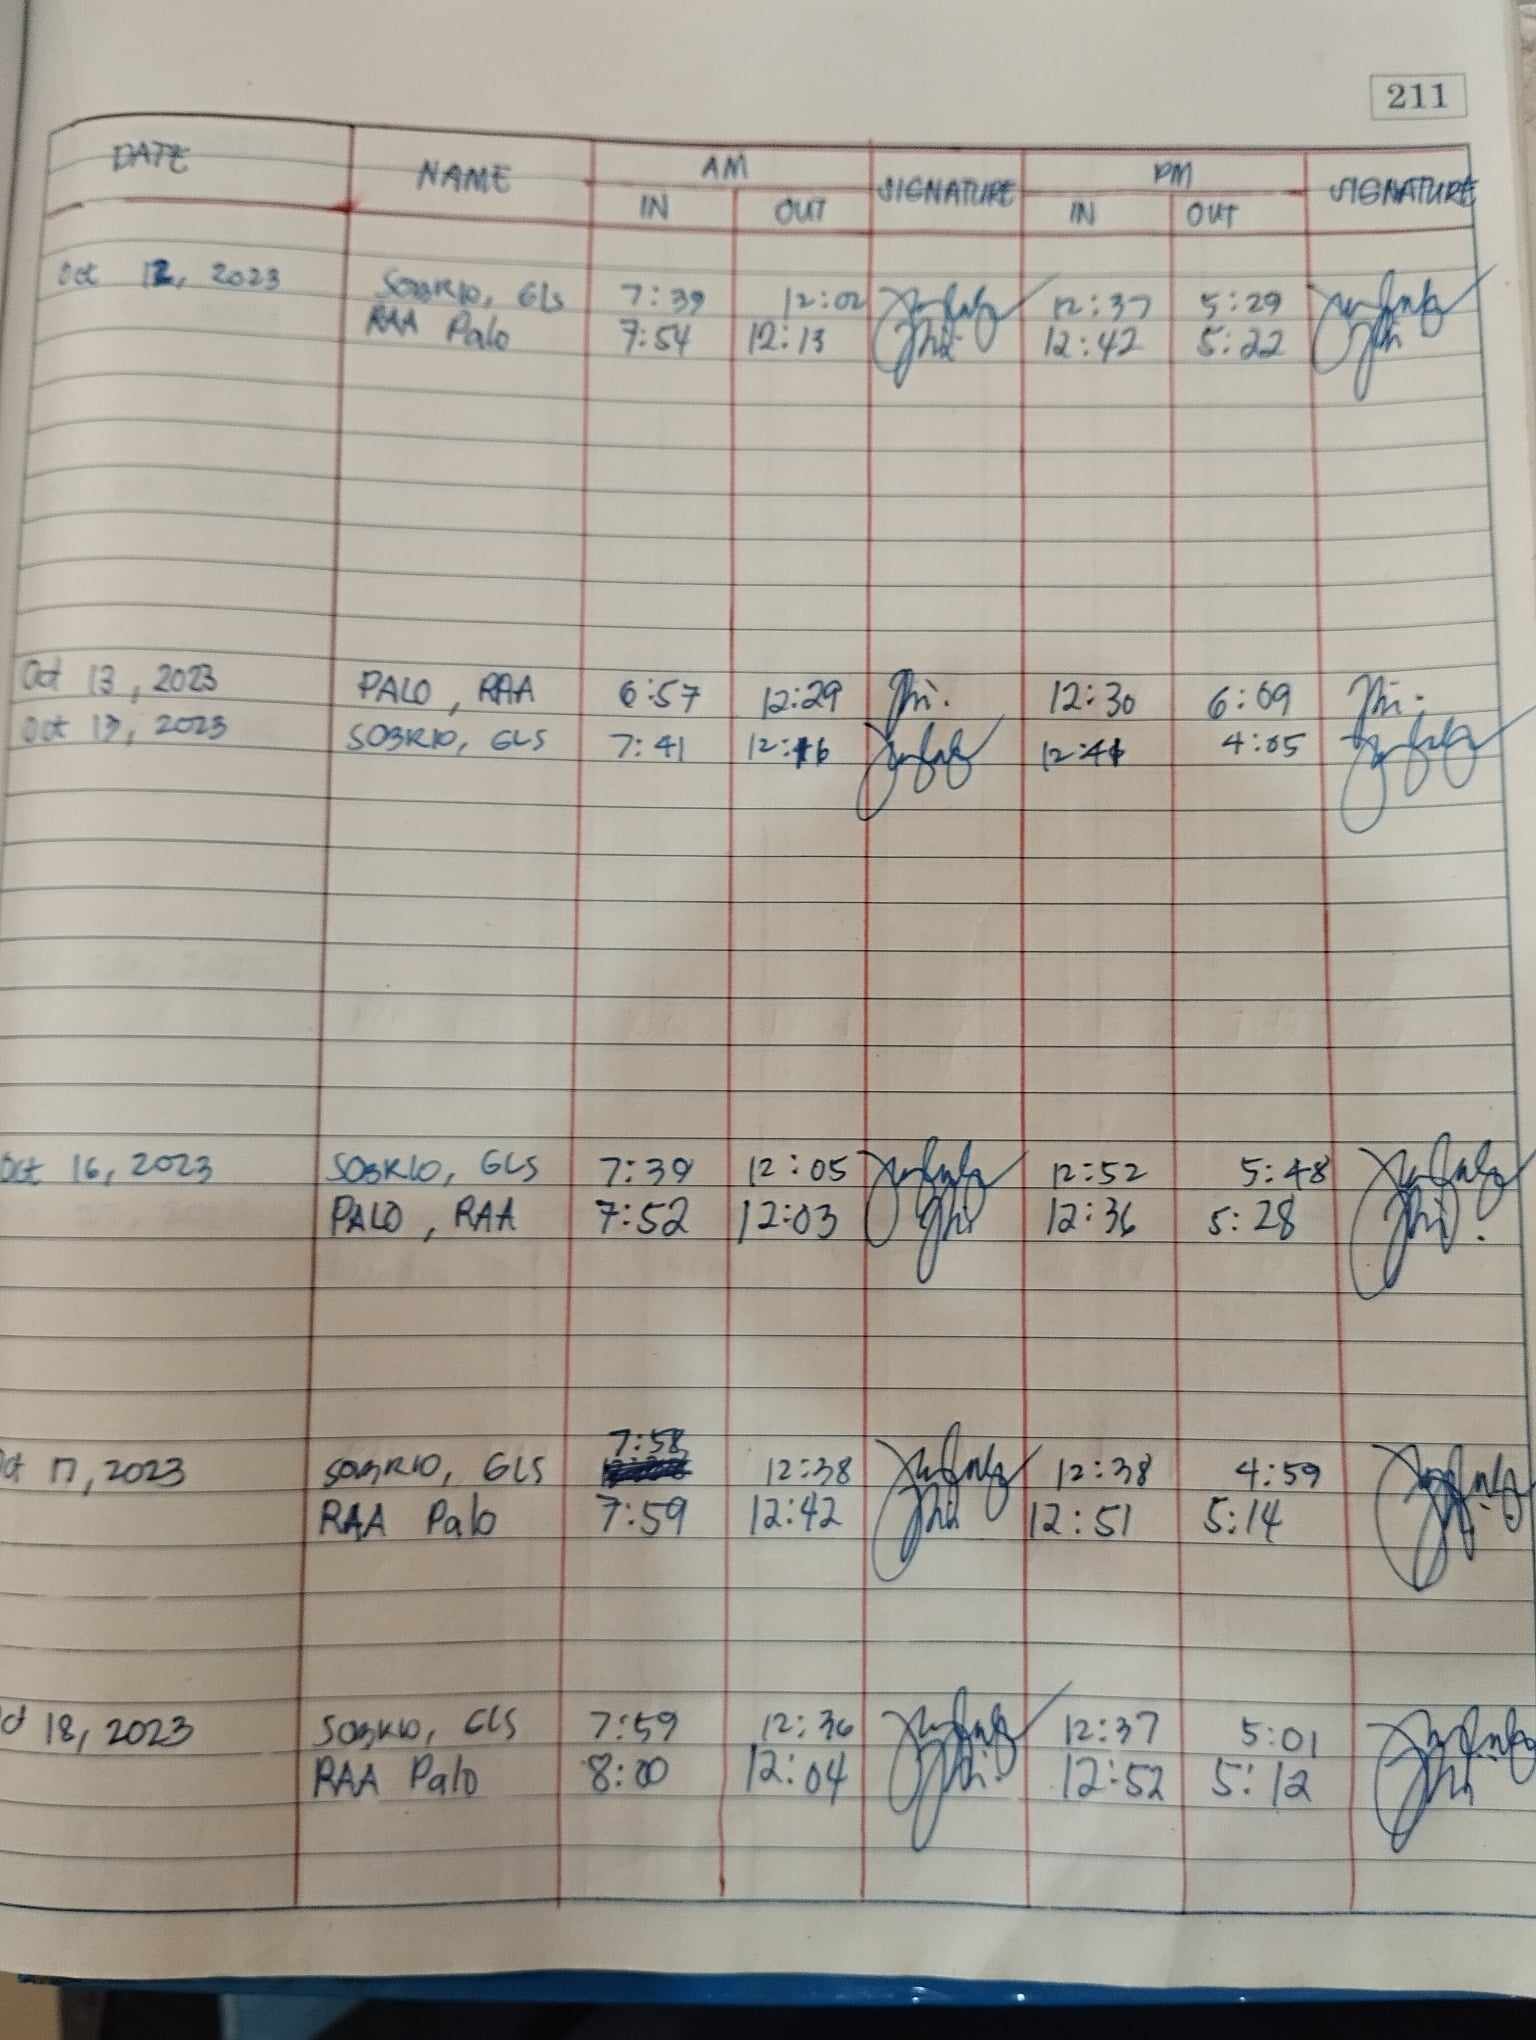 211
DATE NAME AM SIGNATURE PM SIGNATURE
IN OUT IN OUT
Oct 12, 2023 SOBRIO, GLS 7:39 12:02 12:37 5:29
RAA Palo 7:54 12:13 12:42 5:22
Oct 13, 2023 PALO, RAA 6:57 12:29 12:30 6:09
Oct 13, 2023 SOBRIO, GLS 7:41 12:16 12:41 4:05
Oct 16, 2023 SOBRIO, GLS 7:39 12:05 12:52 5:48
PALO, RAA 7:52 12:03 12:36 5:28
7:58
ct 17, 2023 SOBRIO, GLS 12:38 12:38 4:59
RAA Palo 7:59 12:42 12:51 5:14
18, 2023 SOBRIO, GLS 7:59 12:36 12:37 5:01
RAA Palo 8:00 12:04 12:52 5:12